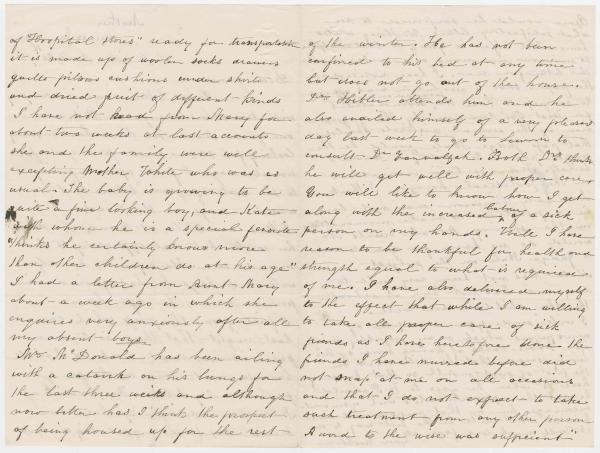 of "Hospital stores" ready for transportation
it is made up of woolen socks drawers
quilts pillows cushions under shirts
and dried fruit of different kinds
I have not head from Mary for
about two weeks at last accounts
she and the family were well
excepting Mother White who was as
usual. The baby is growing to be
quite a fine looking boy, and Kate
with whom he is a special favorite
"thinks he certainly knows more
than other children do at his age"
I had a letter from Aunt Mary
about a week ago in which she
enquires very anxiously after all
my absent boys
Mr McDonald has been ailing
with a catarrh on his lungs for
the last three weeks and although
now better has I think the prospect
of being housed up for the rest
of the winter. He has not been
confined to his bed at any time
but does not go out of the house.
Dr Hibler attends him and he
also availed himself of a very pleasant
day last week to go to
consult Dr Both Drs think
he will get well with proper care
You will like to know how I get
along with the increased labour of a sick
person on my hands. While I have
reason to be thankful for health and
strength equal to what is required
of me. I have also delivered myself
to the effect that while I am willing
to take all proper care of sick
friends as I have heretofore done the
friends I have nursed before did
not "snap" at me on all occasions
and that I do not expect to take
such treatment from any other person
A word to the wise was sufficient"